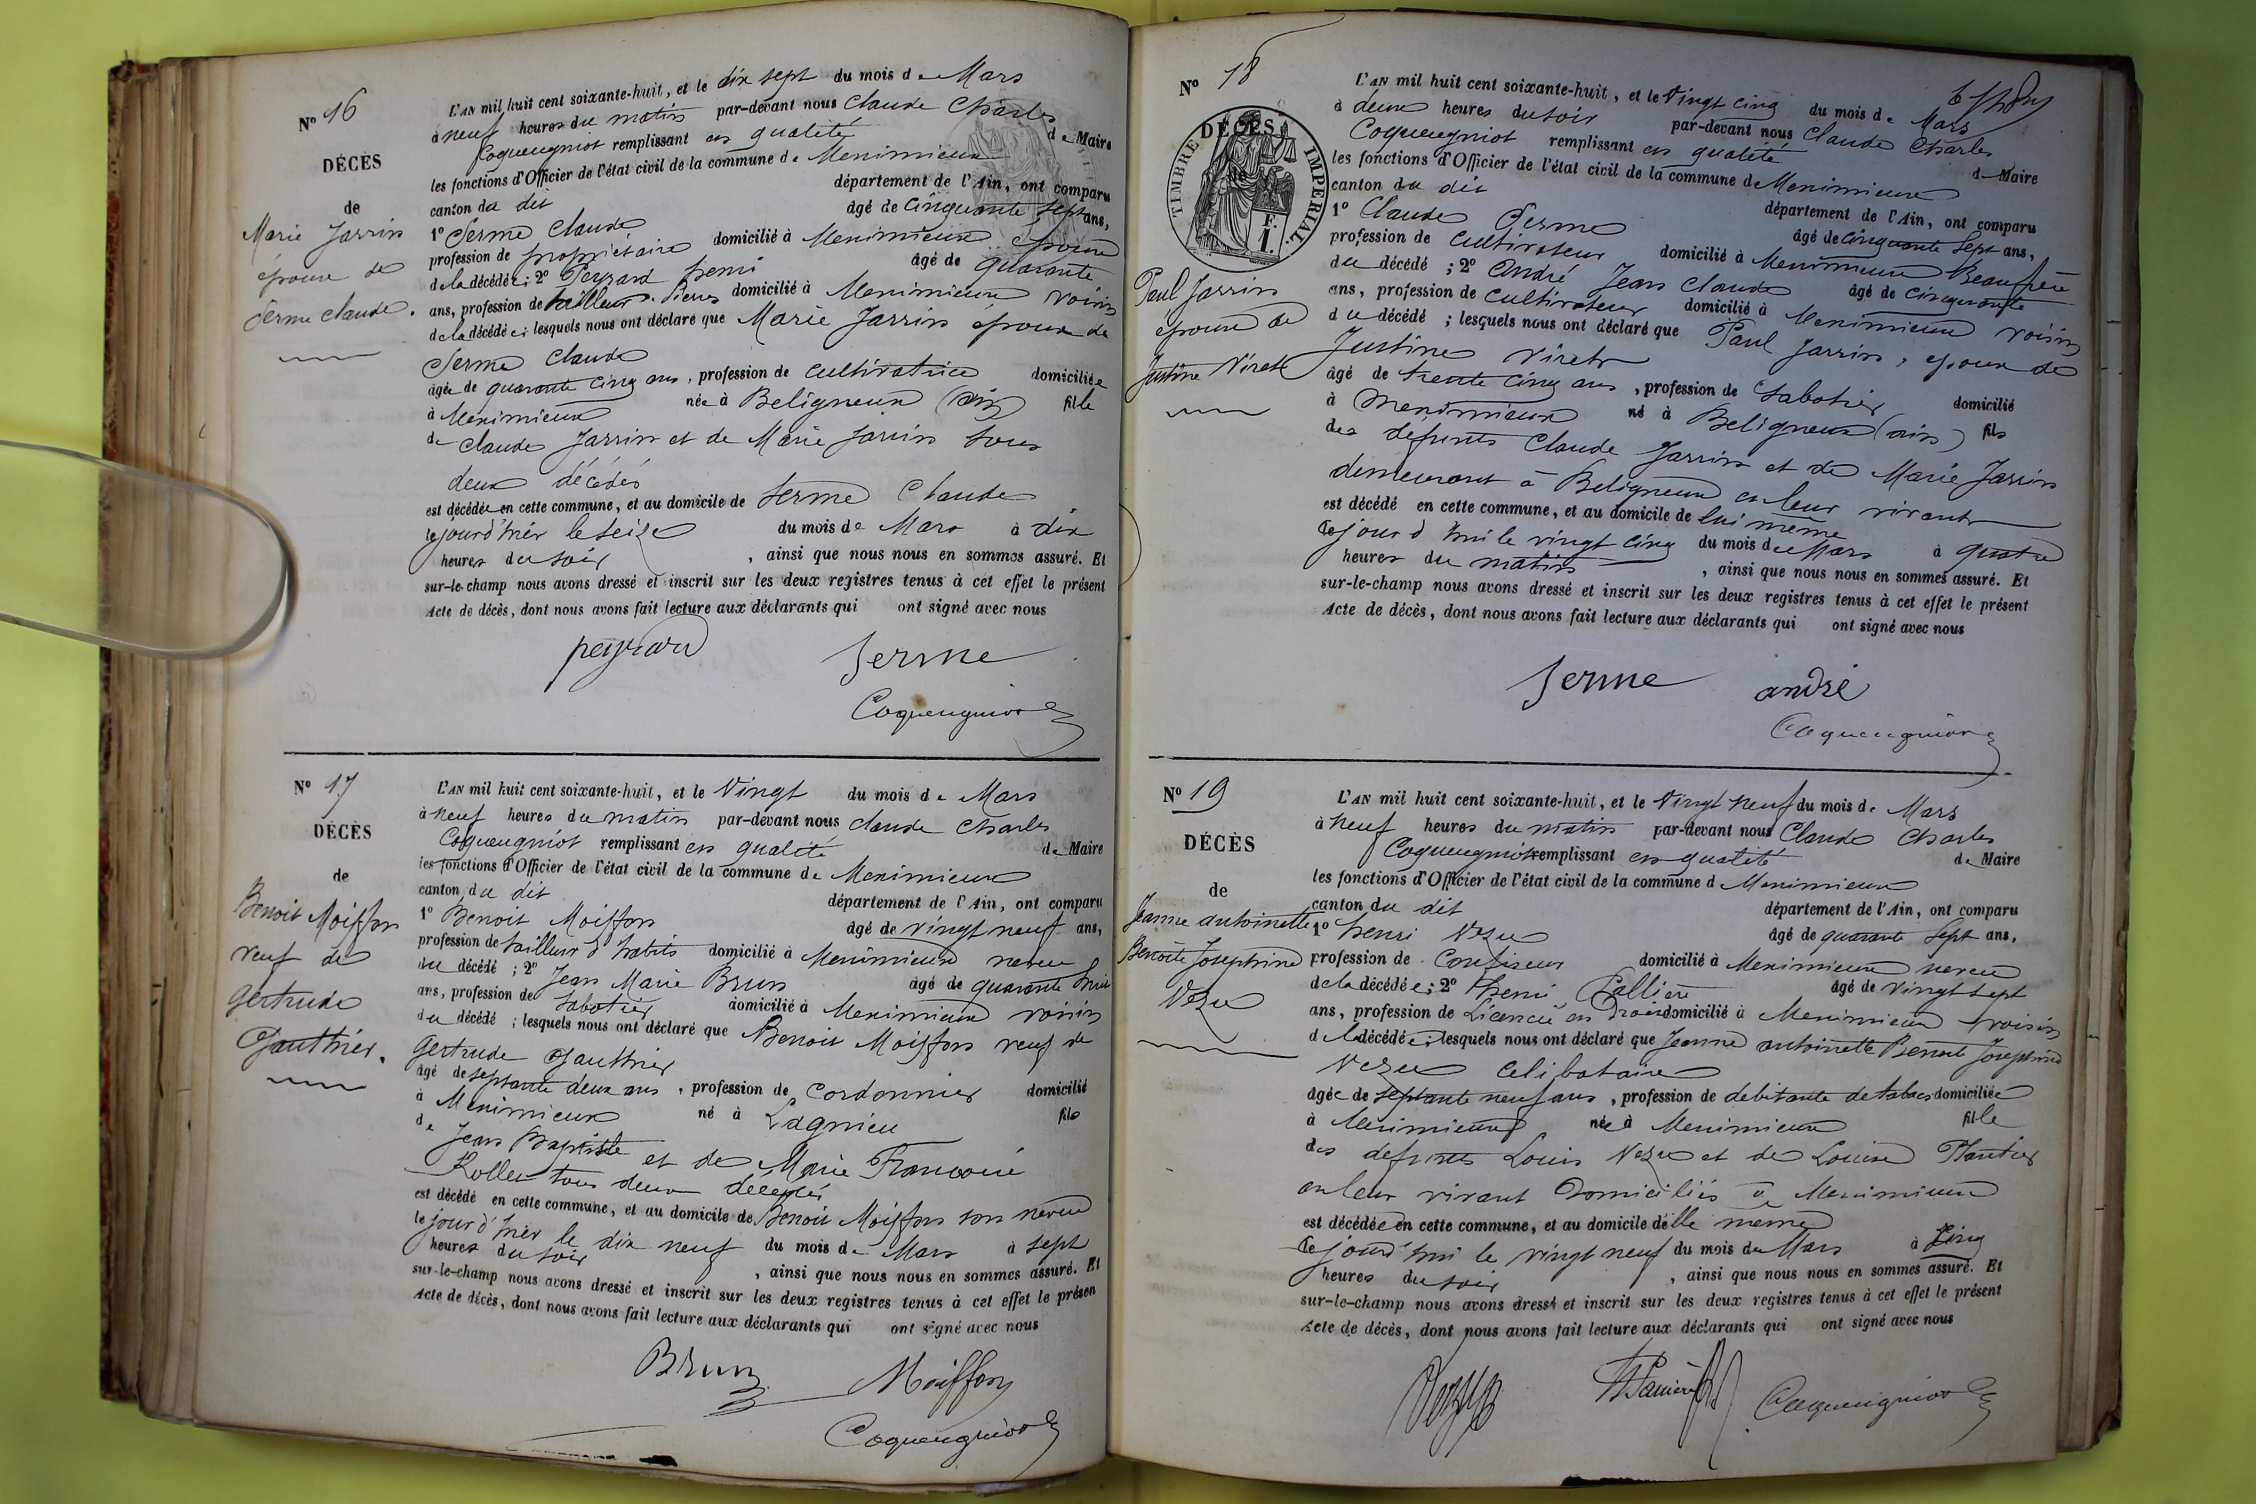 Nº 16
DÉCÈS
de
Marie Jarrin
épouse de
Serme Claude.
L'AN mil huit cent soixante-huit, et le dix sept du mois de Mars
à neuf heures du matin par-devant nous Claude Charles
Coqueugniot remplissant en qualité de Maire
les fonctions d'Officier de l'état civil de la commune de Meximieux
canton du dit département de l'Ain, ont comparu
1º Serme Claude âgé de Cinquante sept ans,
profession de propriétaire domicilié à Meximieux époux
de la décédée; 2º Peyrard henri âgé de quarante
ans, profession de tailleur de pierres domicilié à Meximieux voisin
de la décédée; lesquels nous ont déclaré que Marie Jarrin épouse de
Serme Claude
âgée de quarante cinq ans, profession de cultivatrice domiciliée
à Meximieux née à Beligneux (ain) fille
de Claude Jarrin et de Marie Jarrin tous
deux décédés
est décédée en cette commune, et au domicile de Serme Claude
le jour d'hier le seize du mois de Mars à dix
heures du soir, ainsi que nous nous en sommes assuré. Et
sur-le-champ nous avons dressé et inscrit sur les deux registres tenus à cet effet le présent
Acte de décès, dont nous avons fait lecture aux déclarants qui ont signé avec nous
peyrard Serme
Coqueugniot
Nº 17
DÉCÈS
de
Benoit Moiffon
veuf de
Gertrude
Gauthier.
L'AN mil huit cent soixante-huit, et le Vingt du mois de Mars
à neuf heures du matin par-devant nous Claude Charles
Coqueugniot remplissant en qualité de Maire
les fonctions d'Officier de l'état civil de la commune de Meximieux
canton du dit département de l'Ain, ont comparu
1º Benoit Moiffon âgé de vingt neuf ans,
profession de tailleur d'habits domicilié à Meximieux neveu
du décédé; 2º Jean Marie Brun âgé de quarante huit
ans, profession de Sabotier domicilié à Meximieux voisin
du décédé; lesquels nous ont déclaré que Benoit Moiffon veuf de
Gertrude Gauthier
âgé de septante deux ans, profession de Cordonnier domicilié
à Meximieux né à Lagnieu fils
de Jean Baptiste et de Marie Francoise
Rollet tous deux décédés
est décédé en cette commune, et au domicile de Benoit Moiffon son neveu
le jour d'hier le dix neuf du mois de Mars à sept
heures du soir, ainsi que nous nous en sommes assuré. Et
sur-le-champ nous avons dressé et inscrit sur les deux registres tenus à cet effet le présen
Acte de décès, dont nous avons fait lecture aux déclarants qui ont signé avec nous
Brun Moiffon
Coqueugniot
Nº 18
TIMBRE IMPÉRIAL
DÉCÈS
de
F.
1.
Paul Jarrin
époux de
Justine Viret
L'AN mil huit cent soixante-huit, et le Vingt cinq du mois de Mars
à deux heures du soir par-devant nous Claude Charles
Coqueugniot remplissant en qualité de Maire
les fonctions d'Officier de l'état civil de la commune de Meximieux
canton du dit département de l'Ain, ont comparu
1º Claude Serme âgé de cinquante sept ans,
profession de cultivateur domicilié à Meximieux Beaufrère
du décédé; 2º André Jean Claude âgé de cinquante
ans, profession de cultivateur domicilié à Meximieux voisin
du décédé; lesquels nous ont déclaré que Paul Jarrin, époux de
Justine Viret
âgé de trente cinq ans, profession de Sabotier domicilié
à Meximieux né à Beligneux (ain) fils
des défunts Claude Jarrin et de Marie Jarrin
demeurant à Beligneux en leur vivant
est décédé en cette commune, et au domicile de lui même
le jour d'hui le vingt cinq du mois de Mars à quatre
heures du matin, ainsi que nous nous en sommes assuré. Et
sur-le-champ nous avons dressé et inscrit sur les deux registres tenus à cet effet le présent
Acte de décès, dont nous avons fait lecture aux déclarants qui ont signé avec nous
Serme andré
Coqueugniot
Nº 19
DÉCÈS
de
Jeanne antoinette
Benoite Josephine
Vezu
L'AN mil huit cent soixante-huit, et le Vingt neuf du mois de Mars
à neuf heures du matin par-devant nous Claude Charles
Coqueugniot remplissant en qualité de Maire
les fonctions d'Officier de l'état civil de la commune d Meximieux
canton du dit département de l'Ain, ont comparu
1º henri Vezu âgé de quarante sept ans,
profession de Confiseur domicilié à Meximieux neveu
de la décédée; 2º henri âgé de vingt sept
ans, profession de Licencié en Droit domicilié à Meximieux voisin
de la décédée; lesquels nous ont déclaré que Jeanne antoinette Benoite Josephine
Vezu celibataire
âgée de septante neuf ans, profession de debitante de tabacs domiciliée
à Meximieux née à Meximieux fille
des defunts Louis Vezu et de Louise
en leur vivant Domiciliés à Meximieux
est décédée en cette commune, et au domicile d'elle meme
le jourd'hui le vingt neuf du mois de Mars à Cinq
heures du soir, ainsi que nous nous en sommes assuré. Et
sur-le-champ nous avons dressé et inscrit sur les deux registres tenus à cet effet le présent
Acte de décès, dont nous avons fait lecture aux déclarants qui ont signé avec nous
Vezu
Coqueugniot